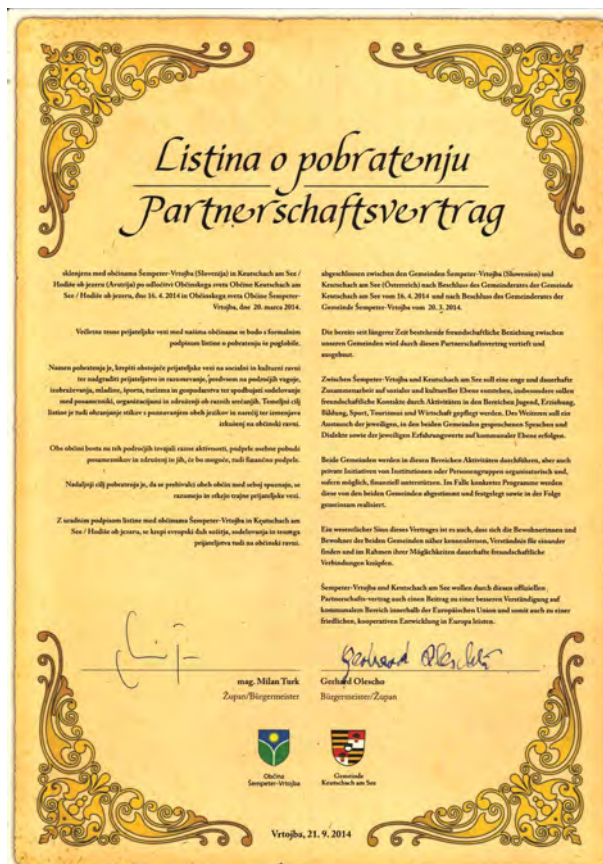 Listina o pobratenju
Partnerschaftsvertrag
sklenjena med občinama Šempeter-Vrtojba (Slovenija) in Keutschach am See /
Hodiše ob jezeru (Avstrija) po odločitvi Občinskega sveta Občine Keutschach am
See / Hodiše ob jezeru, dne 16. 4. 2014 in Občinskega sveta Občine Šempeter-
Vrtojba, dne 20. marca 2014.
Večletne tesne prijateljske vezi med našima občinama se bodo s formalnim
podpisom listine o pobratenju še poglobile.
Namen pobratenja je, krepiti obstoječe prijateljske vezi na socialni in kulturni ravni
ter nadgraditi prijateljstvo in razumevanje, predvsem na področjih vzgoje,
izobraževanja, mladine, športa, turizma in gospodarstva ter spodbujati sodelovanje
med posamezniki, organizacijami in združenji ob raznih srečanjih. Temeljni cilj
listine je tudi ohranjanje stikov s poznavanjem obeh jezikov in narečij ter izmenjava
izkušenj na občinski ravni.
Obe občini bosta na teh področjih izvajali razne aktivnosti, podprle osebne pobude
posameznikov in združenj in jih, če bo mogoče, tudi finančno podprle.
Nadaljnji cilj pobratenja je, da se prebivalci obeh občin med seboj spoznajo, se
razumejo in stkejo trajne prijateljske vezi.
Z uradnim podpisom listine med občinama Šempeter-Vrtojba in Keutschach am
See / Hodiše ob jezeru, se krepi evropski duh sožitja, sodelovanja in trajnega
prijateljstva tudi na občinski ravni.
abgeschlossen zwischen den Gemeinden Šempeter-Vrtojba (Slowenien) und
Keutschach am See (Österreich) nach Beschluss des Gemeinderates der Gemeinde
Keutschach am See vom 16. 4. 2014 und nach Beschluss des Gemeinderates der
Gemeinde Šempeter-Vrtojba vom 20. 3. 2014.
Die bereits seit längerer Zeit bestehende freundschaftliche Beziehung zwischen
unseren Gemeinden wird durch diesen Partnerschaftsvertrag vertieft und
ausgebaut.
Zwischen Šempeter-Vrtojba und Keutschach am See soll eine enge und dauerhafte
Zusammenarbeit auf sozialer und kultureller Ebene entstehen, insbesondere sollen
freundschaftliche Kontakte durch Aktivitäten in den Bereichen Jugend, Erziehung,
Bildung, Sport, Tourismus und Wirtschaft gepflegt werden. Des Weiteren soll ein
Austausch der jeweiligen, in den beiden Gemeinden gesprochenen Sprachen und
Dialekte sowie der jeweiligen Erfahrungswerte auf kommunaler Ebene erfolgen.
Beide Gemeinden werden in diesen Bereichen Aktivitäten durchführen, aber auch
private Initiativen von Institutionen oder Personengruppen organisatorisch und,
sofern möglich, finanziell unterstützen. Im Falle konkreter Programme werden
diese von den beiden Gemeinden abgestimmt und festgelegt sowie in der Folge
gemeinsam realisiert.
Ein wesentlicher Sinn dieses Vertrages ist es auch, dass sich die Bewohnerinnen und
Bewohner der beiden Gemeinden näher kennenlernen, Verständnis für einander
finden und im Rahmen ihrer Möglichkeiten dauerhafte freundschaftliche
Verbindungen knüpfen.
Šempeter-Vrtojba und Keutschach am See wollen durch diesen offiziellen
Partnerschafts-vertrag auch einen Beitrag zu einer besseren Verständigung auf
kommunalem Bereich innerhalb der Europäischen Union und somit auch zu einer
friedlichen, kooperativen Entwicklung in Europa leisten.
mag. Milan Turk
Župan/Bürgermeister
Gerhard Olescho
Gerhard Olescho
Bürgermeister/Župan
Občina
Šempeter-Vrtojba
Gemeinde
Keutschach am See
Vrtojba, 21. 9. 2014